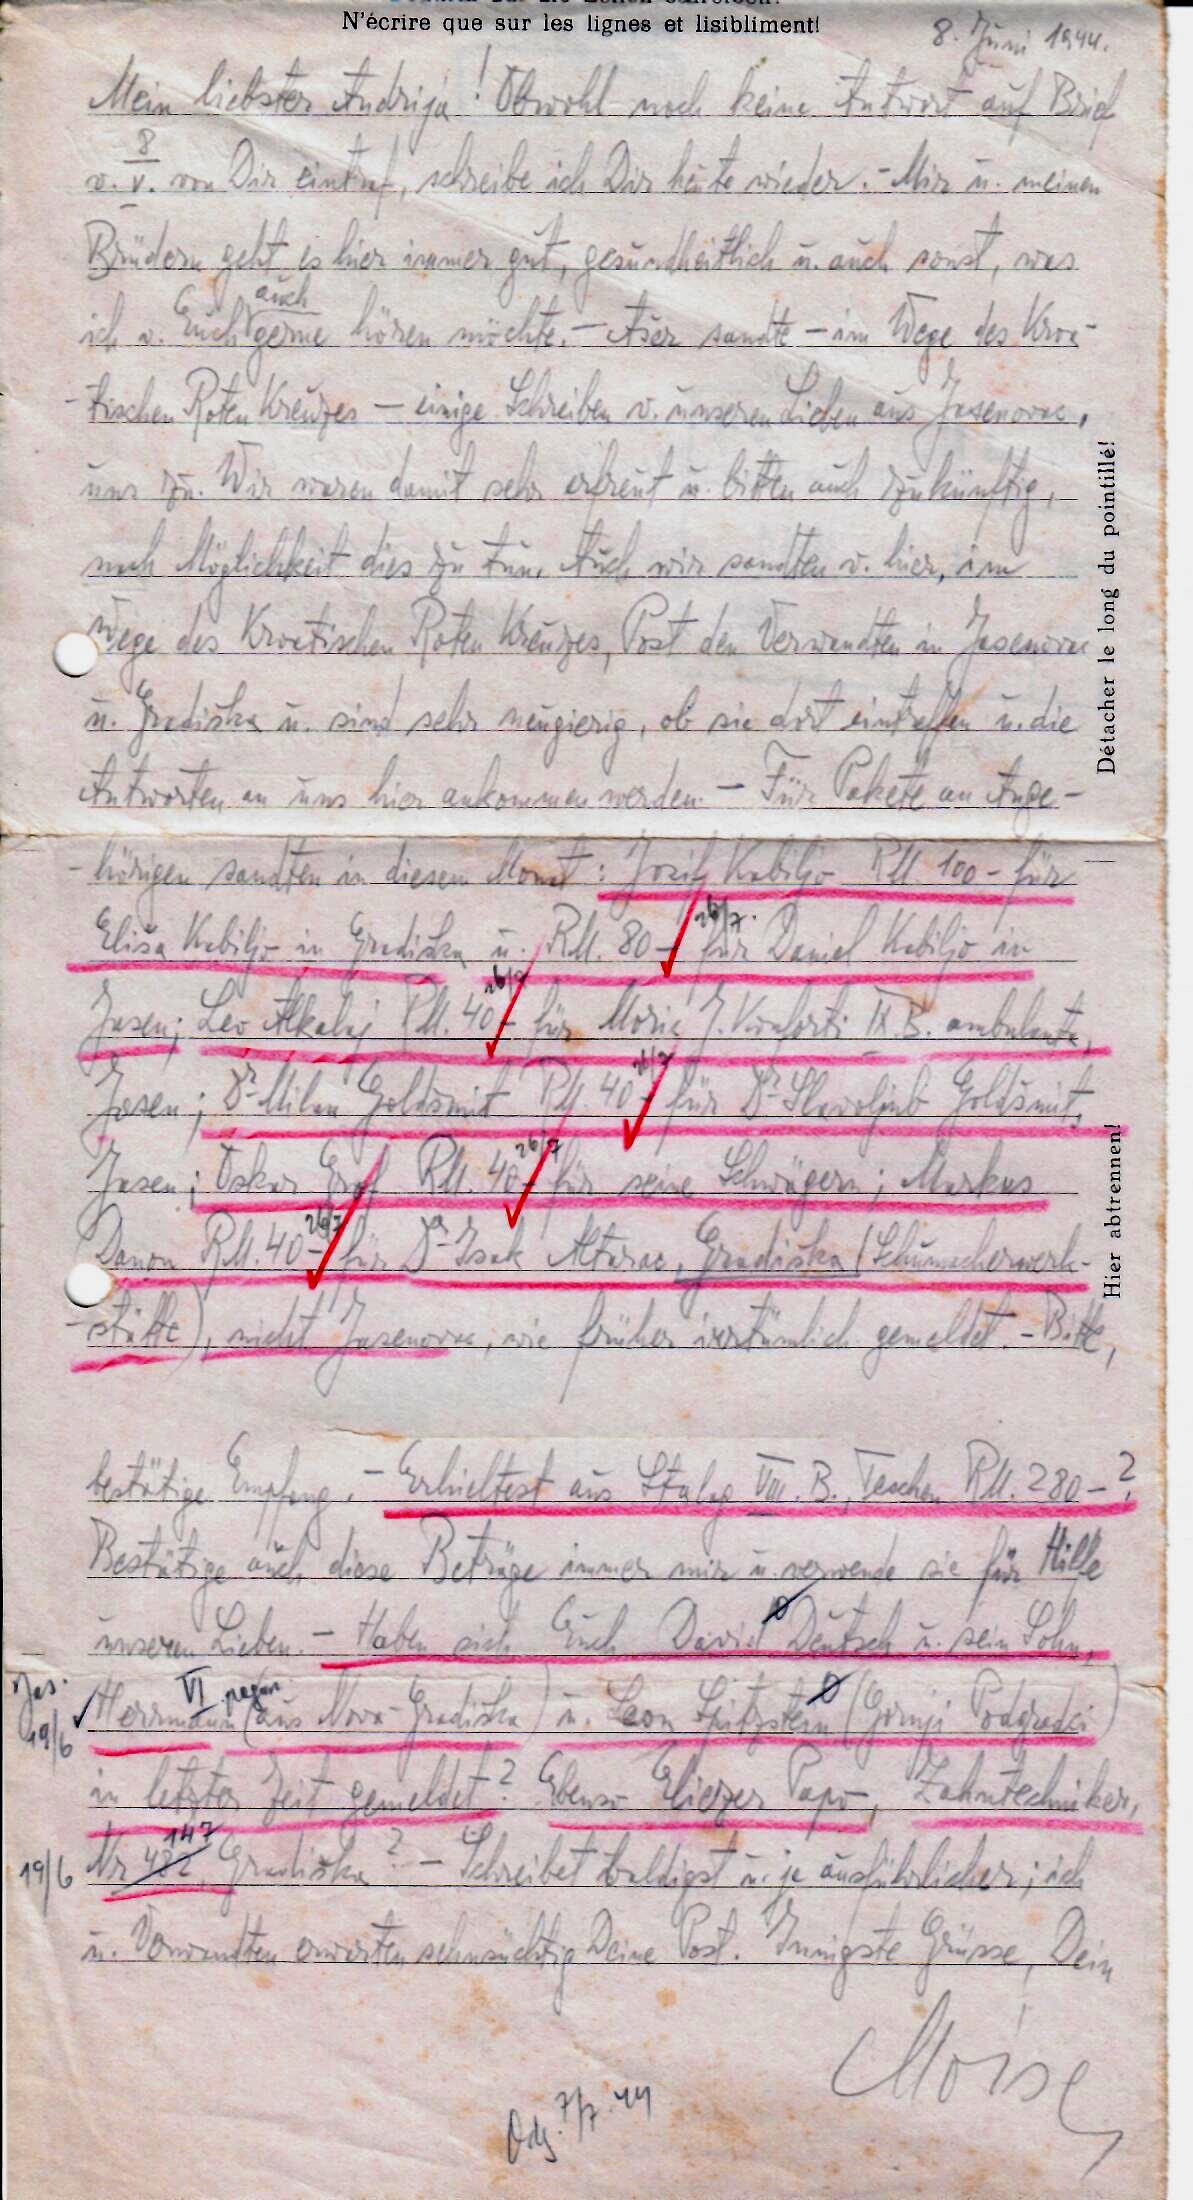 N'écrire que sur les lignes et lisibliment!
8. Juni 1944.
Mein liebster Andrija! Obwohl noch keine Antwort auf Brief
v. 8/V. von Dir eintraf, schreibe ich Dir heute wieder. - Mir u. meinen
Brüdern geht es hier immer gut, gesundheitlich u. auch sonst, was
ich v. Euch auch gerne hören möchte. - Ašer sandte - im Wege des Kroa-
-tischen Roten Kreuzes - einige Schreiben v. unseren Lieben aus Jasenovac,
uns zu. Wir waren damit sehr erfreut u. bitten auch zukünftig,
nach Möglichkeit dies zu tun. Auch wir sandten v. hier, im
Wege des Kroatischen Roten Kreuzes, Post den Verwandten in Jasenovac
u. Gradiška u. sind sehr neugierig, ob sie dort eintreffen u. die
Antworten an uns hier ankommen werden. - Für Pakete an Ange-
-hörigen sandten in diesem Monat: Josif Kabiljo RM 100 - für
26/7.
Eliša Kabiljo in Gradiška u. RM. 80 - für Daniel Kabiljo in
26/7
Jasen; Leo Alkalaj RM. 40 - für Moric J. Konforti IX.B. ambulanta,
26/7
Jasen; Dr Milan Goldšmit RM. 40 - für Dr Slavoljub Goldšmit,
26/7
Jasen; Oskar Graf RM. 40 - für seine Schwägerin; Markus
26/7
Danon RM. 40 - für Dr Isak Altarac, Gradiška (Schumacherwerk-
-stätte), nicht Jasenovac, wie früher irrtümlich gemeldet. - Bitte,
bestätige Empfang. - Erhieltest aus Stalag VIII. B., Teschen RM. 280 - ?
Bestätige auch diese Beträge immer mir u. verwende sie für Hilfe
unseren Lieben. - Haben sich Euch David Deutsch u. sein Sohn,
Jas.
19/6
VI
Herrmann (aus Nova-Gradiška) u. Leon Spitzstein (Gornji Podgradci)
in letzter Zeit gemeldet? Ebenso Eliezer Papo, Zahntechniker,
147
19/6
Nr 482, Gradiška? - Schreibet baldigst u. je ausführlicher; ich
u. Verwandten erwarten sehnsüchtig Deine Post. Innigste Grüsse, Dein
Moise
Odg. 7/7. 44
Détacher le long du pointillé!
Hier abtrennen!